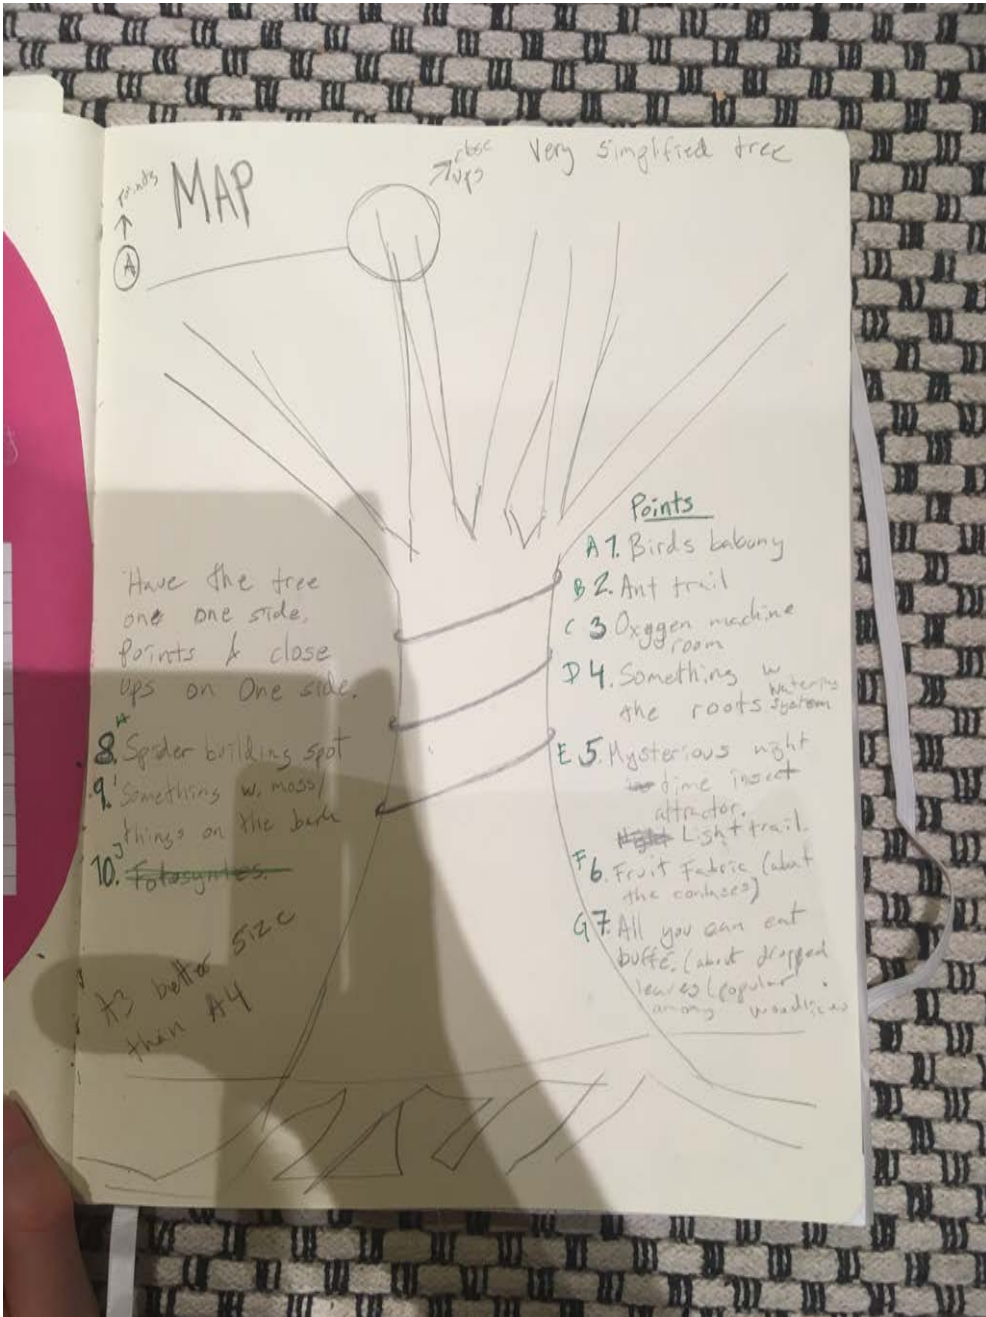 points
A
MAP
close
ups
Very simplified tree
Have the tree
one one side.
Points & close
ups on One side.
H
8. Spider building spot
I
9. Something w. moss/
things on the bark
J
10. Fotosyntes.
A3 better size
than A4
Points
A 1. Birds balcony
B 2. Ant trail
C 3 Oxygen machine
room
D 4. Something w
the roots watering
system
E 5. Mysterious night
time insect
attractor.
Light trail.
F 6. Fruit Fabric (about
the
G 7. All you can eat
buffé. (about dropped
leaves (popular
among woodlices